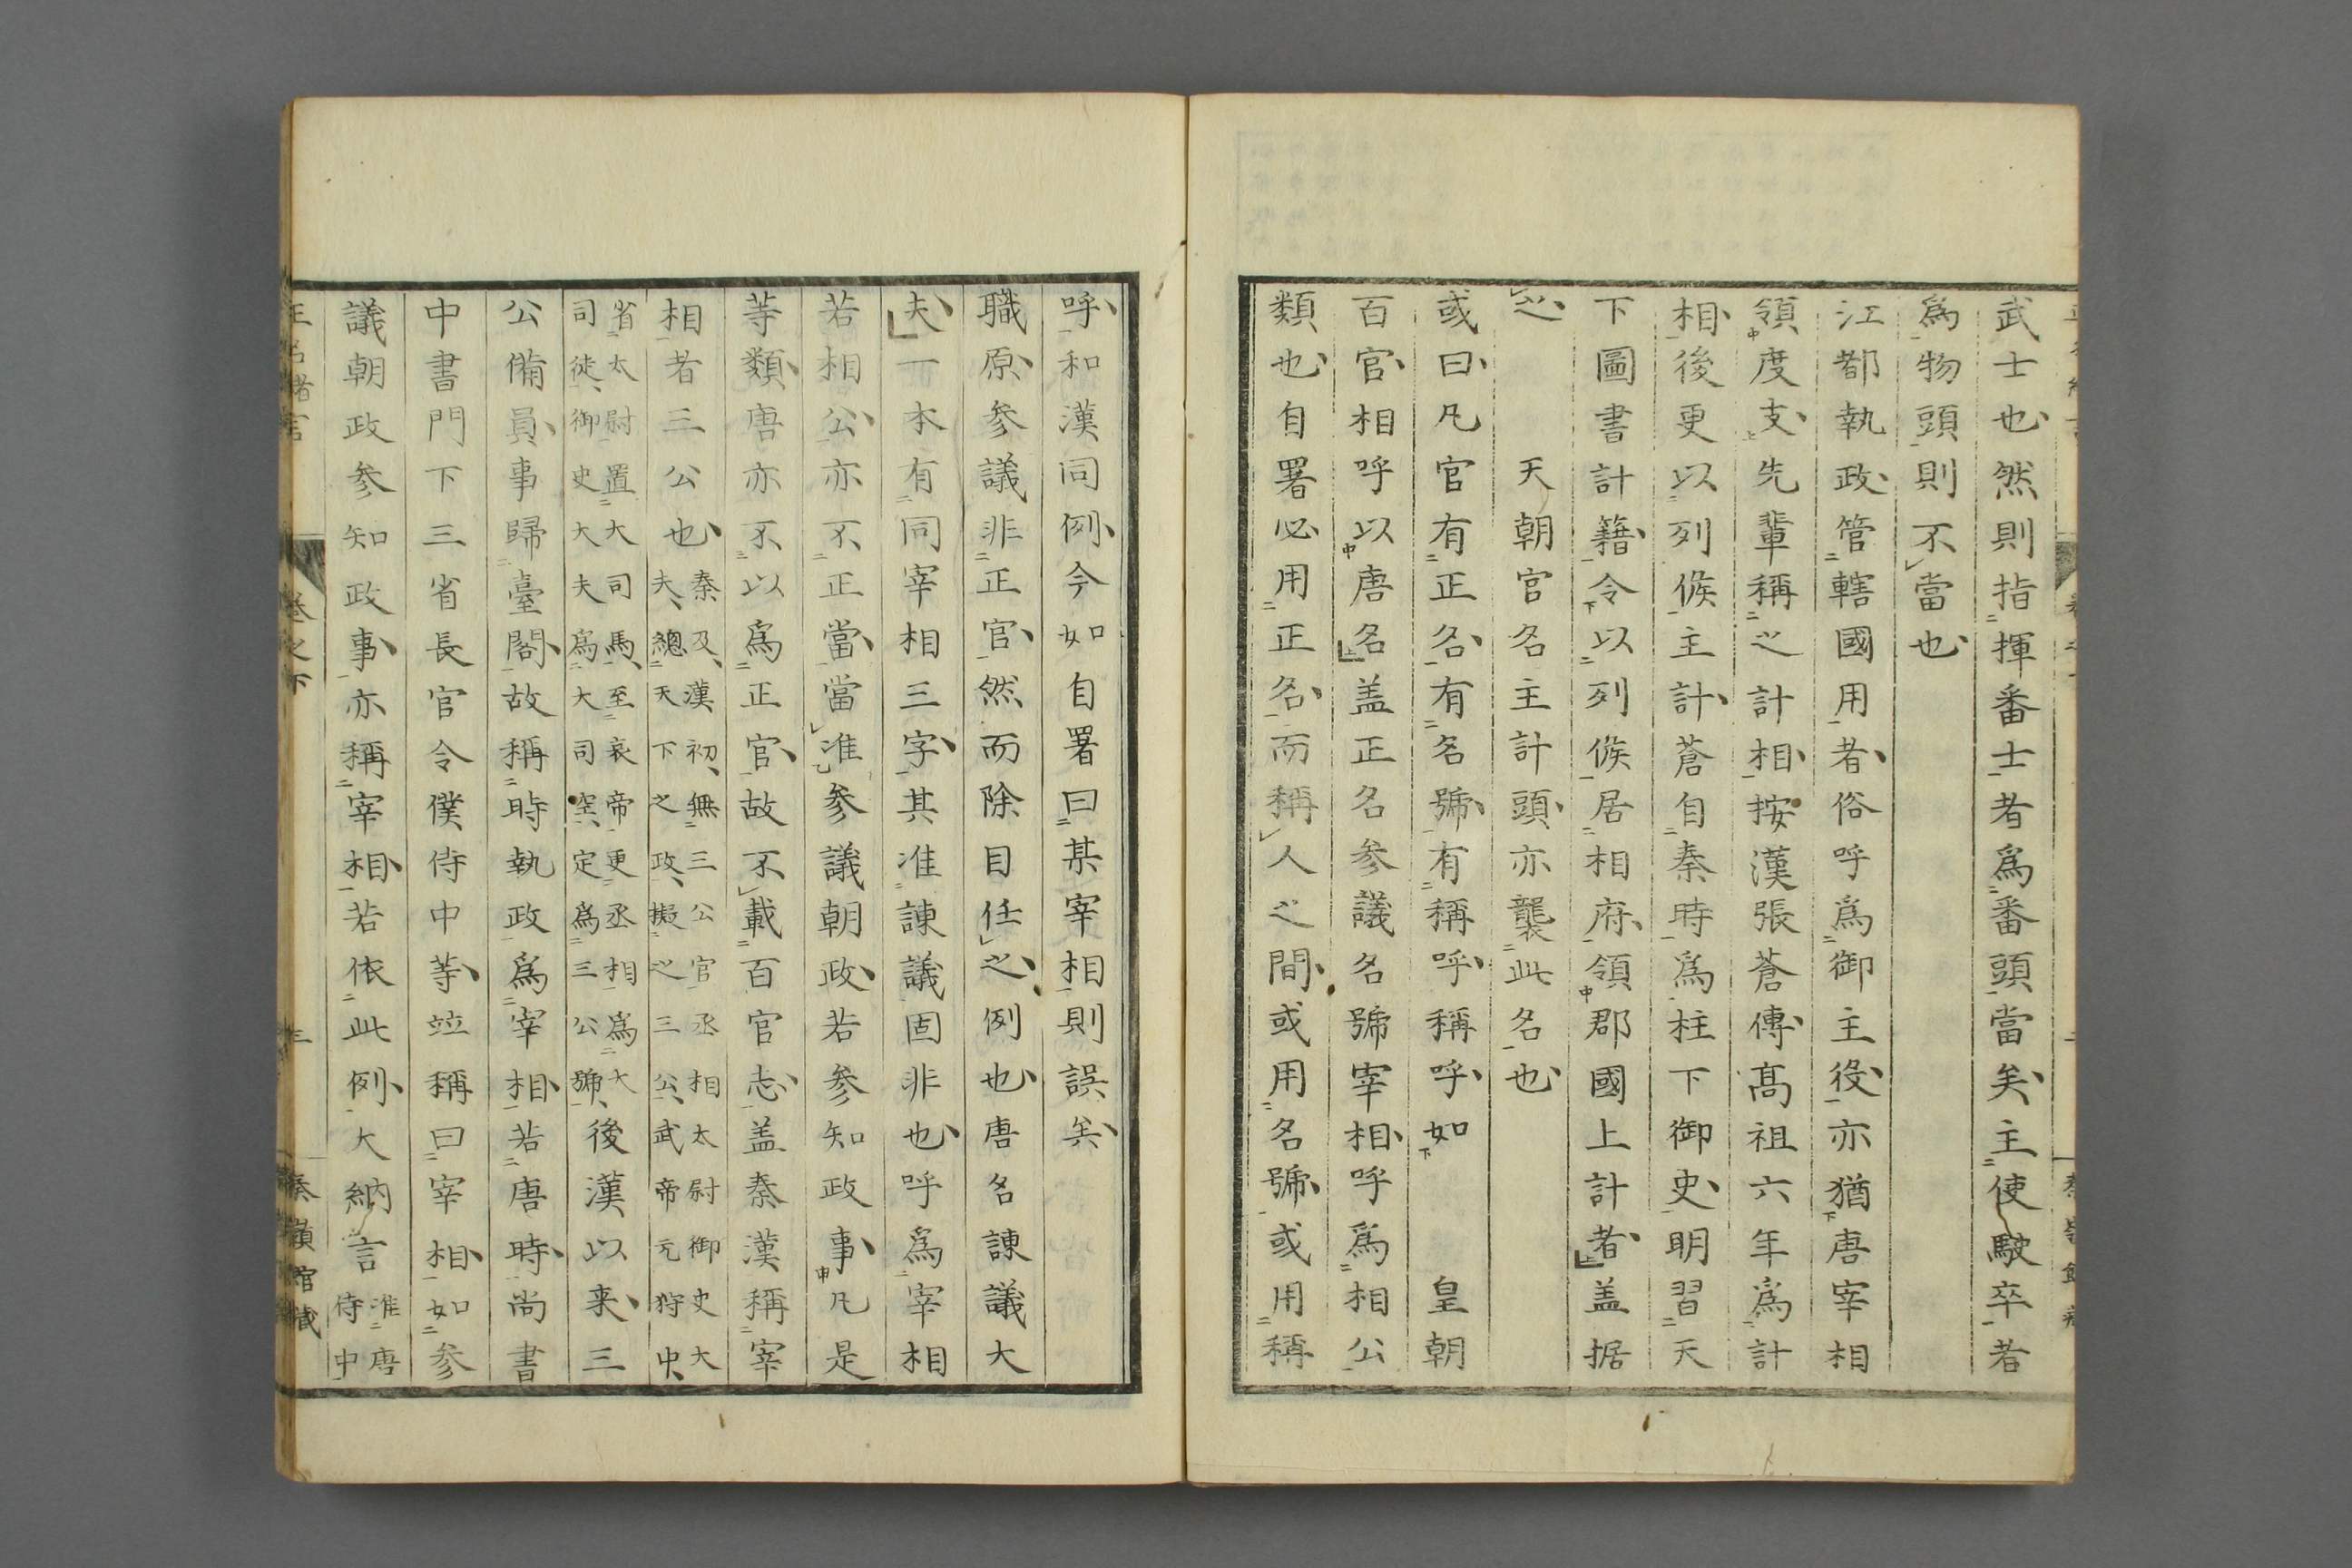 武士也然則指揮番士者爲番頭當矣主使駛卒者
爲物頭則不當也
江都執政管轄國用者俗呼爲御主役亦猶唐宰相
領度支先輩稱之計相按漢張蒼傳髙祖六年爲計
相後更以列侯主計蒼自秦時爲柱下御史明習天
下圖書計籍令以列侯居相府領郡國上計者盖据
之 天朝官名主計頭亦襲此名也
或曰凡官有正名有名號有稱呼稱呼如 皇朝
百官相呼以唐名盖正名参議名號宰相呼爲相公
類也自署必用正名而稱人之間或用名號或用稱
呼和漢同例今如自署曰某宰相則誤矣
職原参議非正官然而除目任之例也唐名諌議大
夫一本有同宰相三字其准諌議固非也呼爲宰相
若相公亦不正當當准参議朝政若参知政事凡是
等類唐亦不以爲正官故不載百官志盖秦漢稱宰
相者三公也秦及漢初無三公官丞相太尉御史大
夫總天下之政擬之三公武帝元狩中
省太尉置大司馬至哀帝更丞相爲大
司徒御史大夫爲大司空定爲三公號後漢以来三
公備員事歸臺閣故稱時執政爲宰相若唐時尚書
中書門下三省長官令僕侍中等竝稱曰宰相如参
議朝政参知政事亦稱宰相若依此例大納言准唐
侍中
正名緒言
卷之下
三
奏嶺館藏